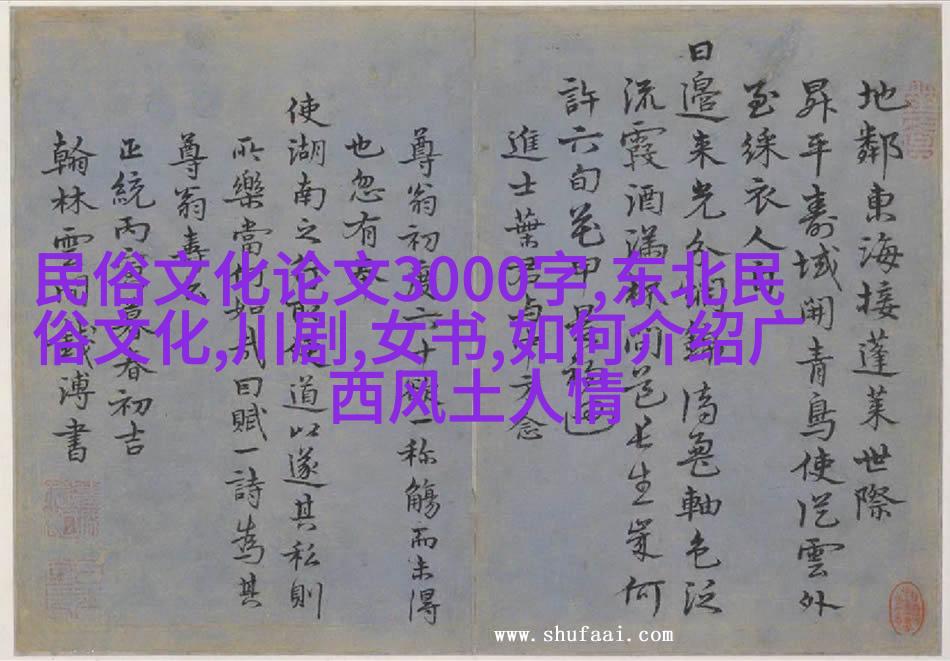 地鄰東海接蓬萊世際
昇平壽域開青鳥使從雲外
至綵衣人
日邊來光 龜軸色泛
流霞酒滿 問 長生策何
許六旬花甲
進士葉 念
尊翁初度六十 一称觴而未得
也忽有
使湖南之 道以遂其私則
所樂當何如 因賦一詩為其
尊翁壽
正統丙 暮春初吉
翰林 溥書
民俗文化论文3000字,东北民
俗文化,川剧,女书,如何介绍广
西风土人情
www.shufaai.com